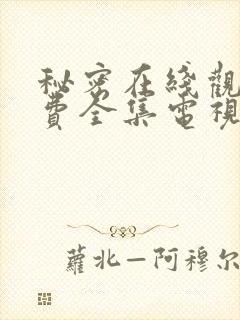 秘密在綫觀
費全集電視
蘿北—阿穆尔